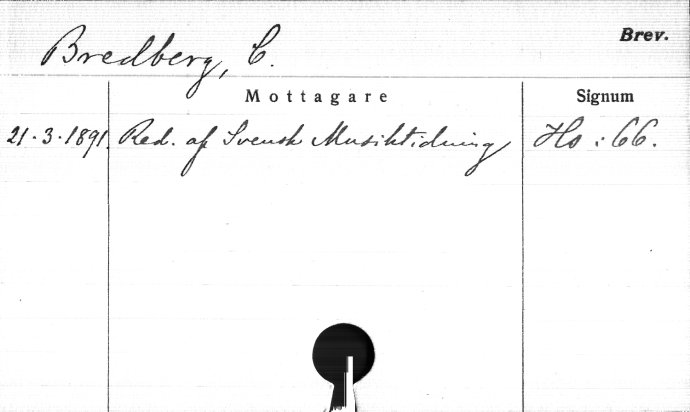 Bredberg, C. Brev.
Mottagare Signum
21.3.1891. Red. af Svensk Musiktidning Hs : 66.